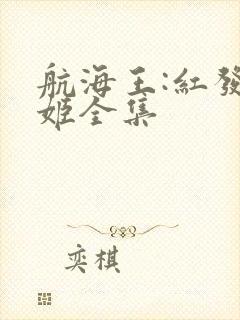 航海王:紅發
姬全集
奕棋